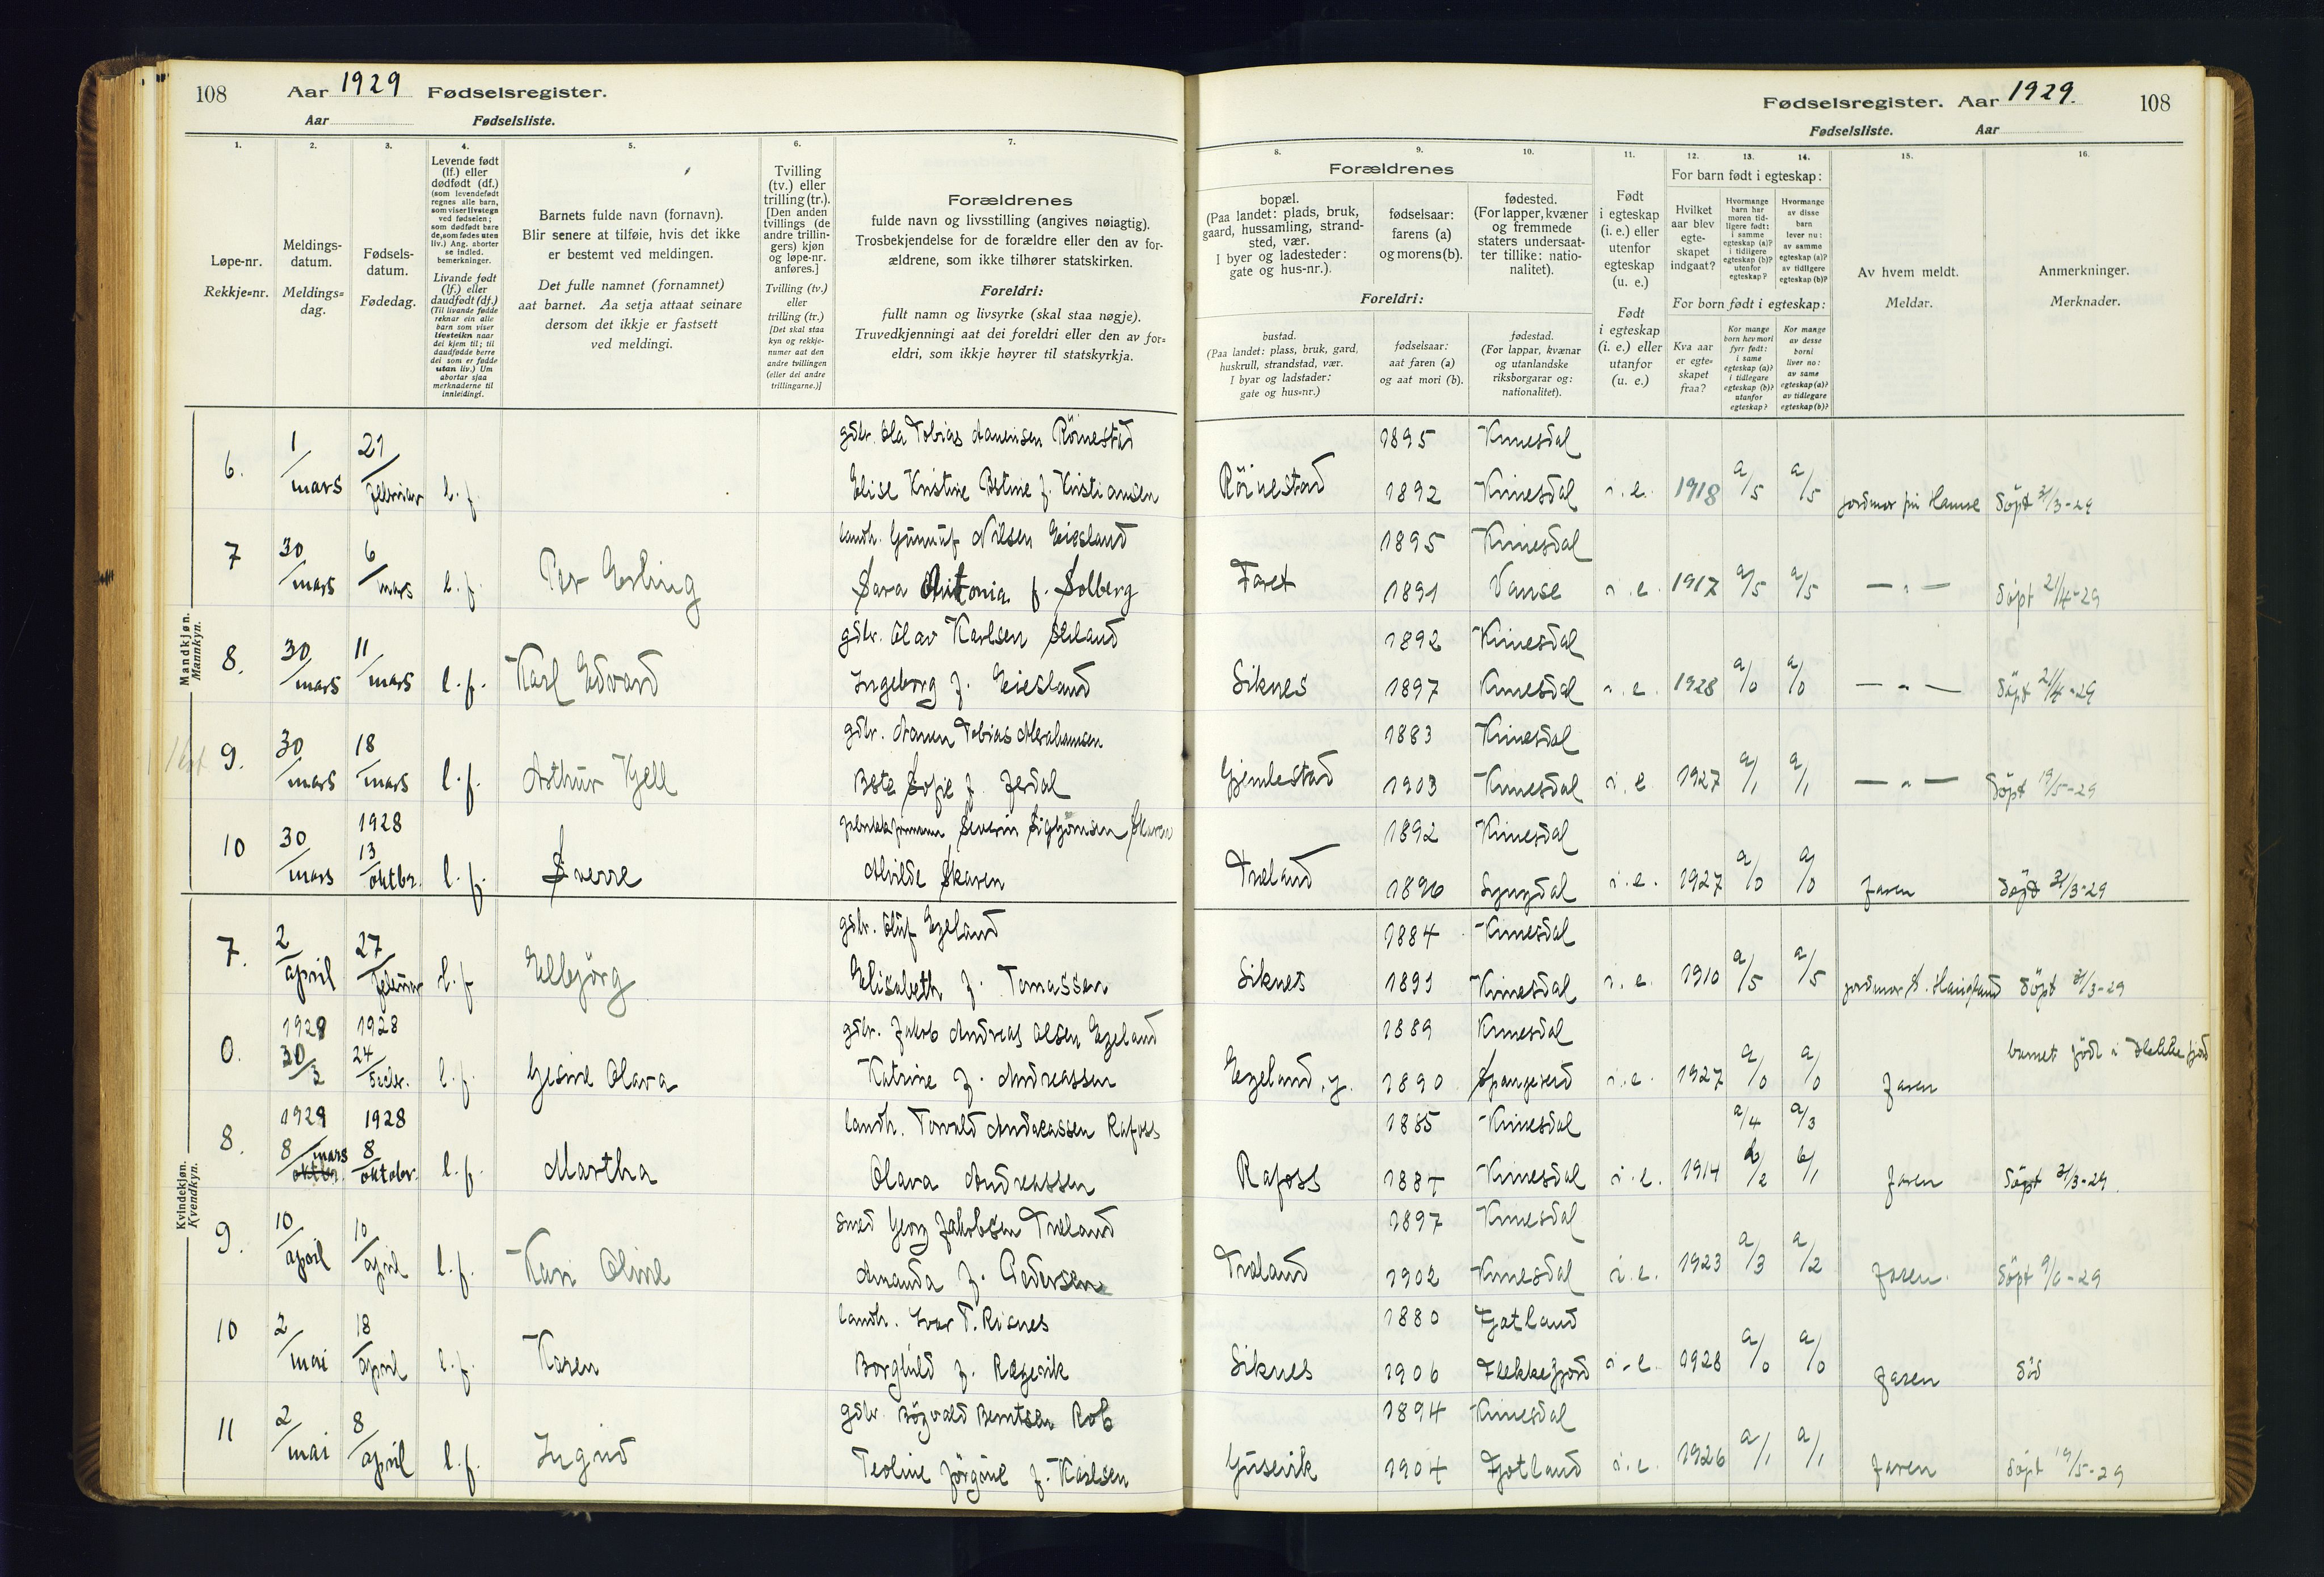 108 Aar 1929 Fødselsregister.
Aar Fødselsliste.
1. 2. 3. 4. 5. 6. 7.
Løpe-nr.
Rekkje=nr.
Meldings-
datum.
Meldings=
dag.
Fødsels-
datum.
Fødedag.
Levende født
(lf.) eller
dødfødt (df.)
(som levendefødt
regnes alle barn,
som viser livstegn
ved fødselen;
som dødfødt bare
de, som fødes uten
liv.) Ang. aborter
se indled.
bemerkninger.
Livande født
(lf.) eller
daudfødt (df.)
(Til livande fødde
reknar ein alle
barn som viser
livsteikn naar
dei kjem til; til
daudfødde berre
dei som er fødde
utan liv.) Um
abortar sjaa
merknaderne til
innleidingi.
Barnets fulde navn (fornavn).
Blir senere at tilføie, hvis det ikke
er bestemt ved meldingen.
Det fulle namnet (fornamnet)
aat barnet. Aa setja attaat seinare
dersom det ikkje er fastsett
ved meldingi.
Tvilling
(tv.) eller
trilling (tr.).
[Den anden
tvillings (de
andre trillin-
gers) kjøn
og løpe-nr.
anføres.]
Tvilling (tv.)
eller
trilling (tr.)
[Det skal staa
kyn og rekkje-
numer aat den
andre tvillingen
(eller dei andre
trillingarne.)]
Forældrenes
fulde navn og livsstilling (angives nøiagtig).
Trosbekjendelse for de forældre eller den av for-
ældrene, som ikke tilhører statskirken.
Foreldri:
fullt namn og livsyrke (skal staa nøgje).
Truvedkjenningi aat dei foreldri eller den av for=
eldri, som ikkje høyrer til statskyrkja.
Fødselsregister. Aar 1929. 108
Fødselsliste. Aar
8. 9. 10. 11. 12. 13. 14. 15. 16.
Forældrenes
bopæl.
(Paa landet: plads, bruk,
gaard, hussamling, strand-
sted, vær.
I byer og ladesteder:
gate og hus-nr.).
fødselsaar:
farens (a)
og morens (b).
fødested.
(For lapper, kvæner
og fremmede
staters undersaat-
ter tillike: natio-
nalitet).
Foreldri:
bustad.
(Paa landet: plass, bruk, gard,
huskrull, strandstad, vær.
I byar og ladstader:
gate og hus=nr.)
fødselsaar:
aat faren (a)
og aat mori (b).
fødestad.
(For lappar, kvænar
og utanlandske
riksborgarar og:
nationalitet).
Født
i egteskap
(i. e.) eller
utenfor
egteskap
(u. e.)
Født
i egteskap
(i. e.) eller
utanfor
(u. e.)
For barn født i egteskap:
Hvilket
aar blev
egte-
skapet
indgaat?
Hvormange
barn har
moren tid-
ligere født:
i samme
egteskap (a)?
i tidligere
egteskap (b)?
utenfor
egteskap?
Hvormange
av disse
barn
lever nu:
av samme
egteskap (a)?
av tidligere
egteskap (b)?
For born født i egteskap:
Kva aar
er egte=
skapet
fraa?
Kor mange
born hev mori
fyrr født:
i same
egteskap (a)?
i tidlegare
egteskap (b)?
utanfor
egteskap?
Kor mange
av desse
borni
liver no:
av same
egteskap (a)?
av tidlegare
egteskap (b)?
Av hvem meldt.
Meldar.
Anmerkninger.
Merknader.
Mandkjøn.
Mannkyn.
6. 1/mars 21/februar l. f. gdbr. Ola Tobias Røinestad 1895 Kvinesdal
Elise Kristine Betine f. Kristiansen Røinestad 1892 Kvinesdal i. e. 1918 a/5 a/5 jordmor Døpt 31/3-29
7 30/mars 6/mars l. f. Per Erling landh. Nilsen Eiesland 1895 Kvinesdal
Sara Antonia f. Solberg Faret 1891 Vanse i. e. 1917 a/5 a/5 — " — Døpt 21/4-29
8. 30/mars 11/mars l. f. Karl Edvard gdbr. Olav Karlsen 1892 Kvinesdal
Ingeborg f. Eiesland Siknes 1897 Kvinesdal i. e. 1928 a/0 a/0 — " — Døpt 21/4-29
9. 30/mars 18/mars l. f. Arthur Kjell gdbr. Tobias Abrahamsen 1883 Kvinesdal
Sofie f. Gjemlestad 1903 Kvinesdal i. e. 1927 a/1 a/1 — " — Døpt 19/5-29
10 30/mars 1928 13/oktbr. l. f. Sverre Severin 1892 Kvinesdal
Alvilde Skaren Træland 1896 Lyngdal i. e. 1927 a/0 a/0 Faren Døpt 31/3-29
Kvindekjøn.
Kvendkyn.
7. 2/april 27/februar l. f. Elbjörg gdbr. Oluf Egeland 1884 Kvinesdal
Elisabeth f. Tomassen Siknes 1891 Kvinesdal i. e. 1910 a/5 a/5 jordmor Døpt 31/3-29
0. 1929 30/3 1928 24/decbr. l. f. Gesine Olava gdbr. Jakob Andreas Olsen Egeland 1889 Kvinesdal
Katrine f. Andreassen Egeland, y. 1890 Spangereid i. e. 1927 a/0 a/0 Faren barnet født i Flekkefjord
8. 1929 8/mars oktbr. 1928 8/oktober l. f. Martha landh. Torvald Andreassen Rafoss 1885 Kvinesdal a/4 a/3
Olava Andreassen Rafoss 1884 Kvinesdal i. e. 1914 b/2 b/1 Faren Døpt 31/3-29.
9. 10/april 10/april l. f. Kari Oline smed Georg Jakobsen Træland 1897 Kvinesdal
Amanda f. Pedersen Træland 1902 Kvinesdal i. e. 1923 a/3 a/2 Faren. Døpt 9/6-29
10 2/mai 18/april l. f. Karen landh. Ivar T. Risnes 1880 Fjotland
Borghild f. Rægevik Siknes 1906 Flekkefjord i. e. 1928 a/0 a/0 Faren død
11 2/mai 8/april l. f. Ingrid gdbr. Berntsen Rob 1894 Kvinesdal
Teoline Jørgine f. Karlsen Gusevik 1904 Fjotland i. e. 1926 a/1 a/1 Faren Døpt 19/5-29